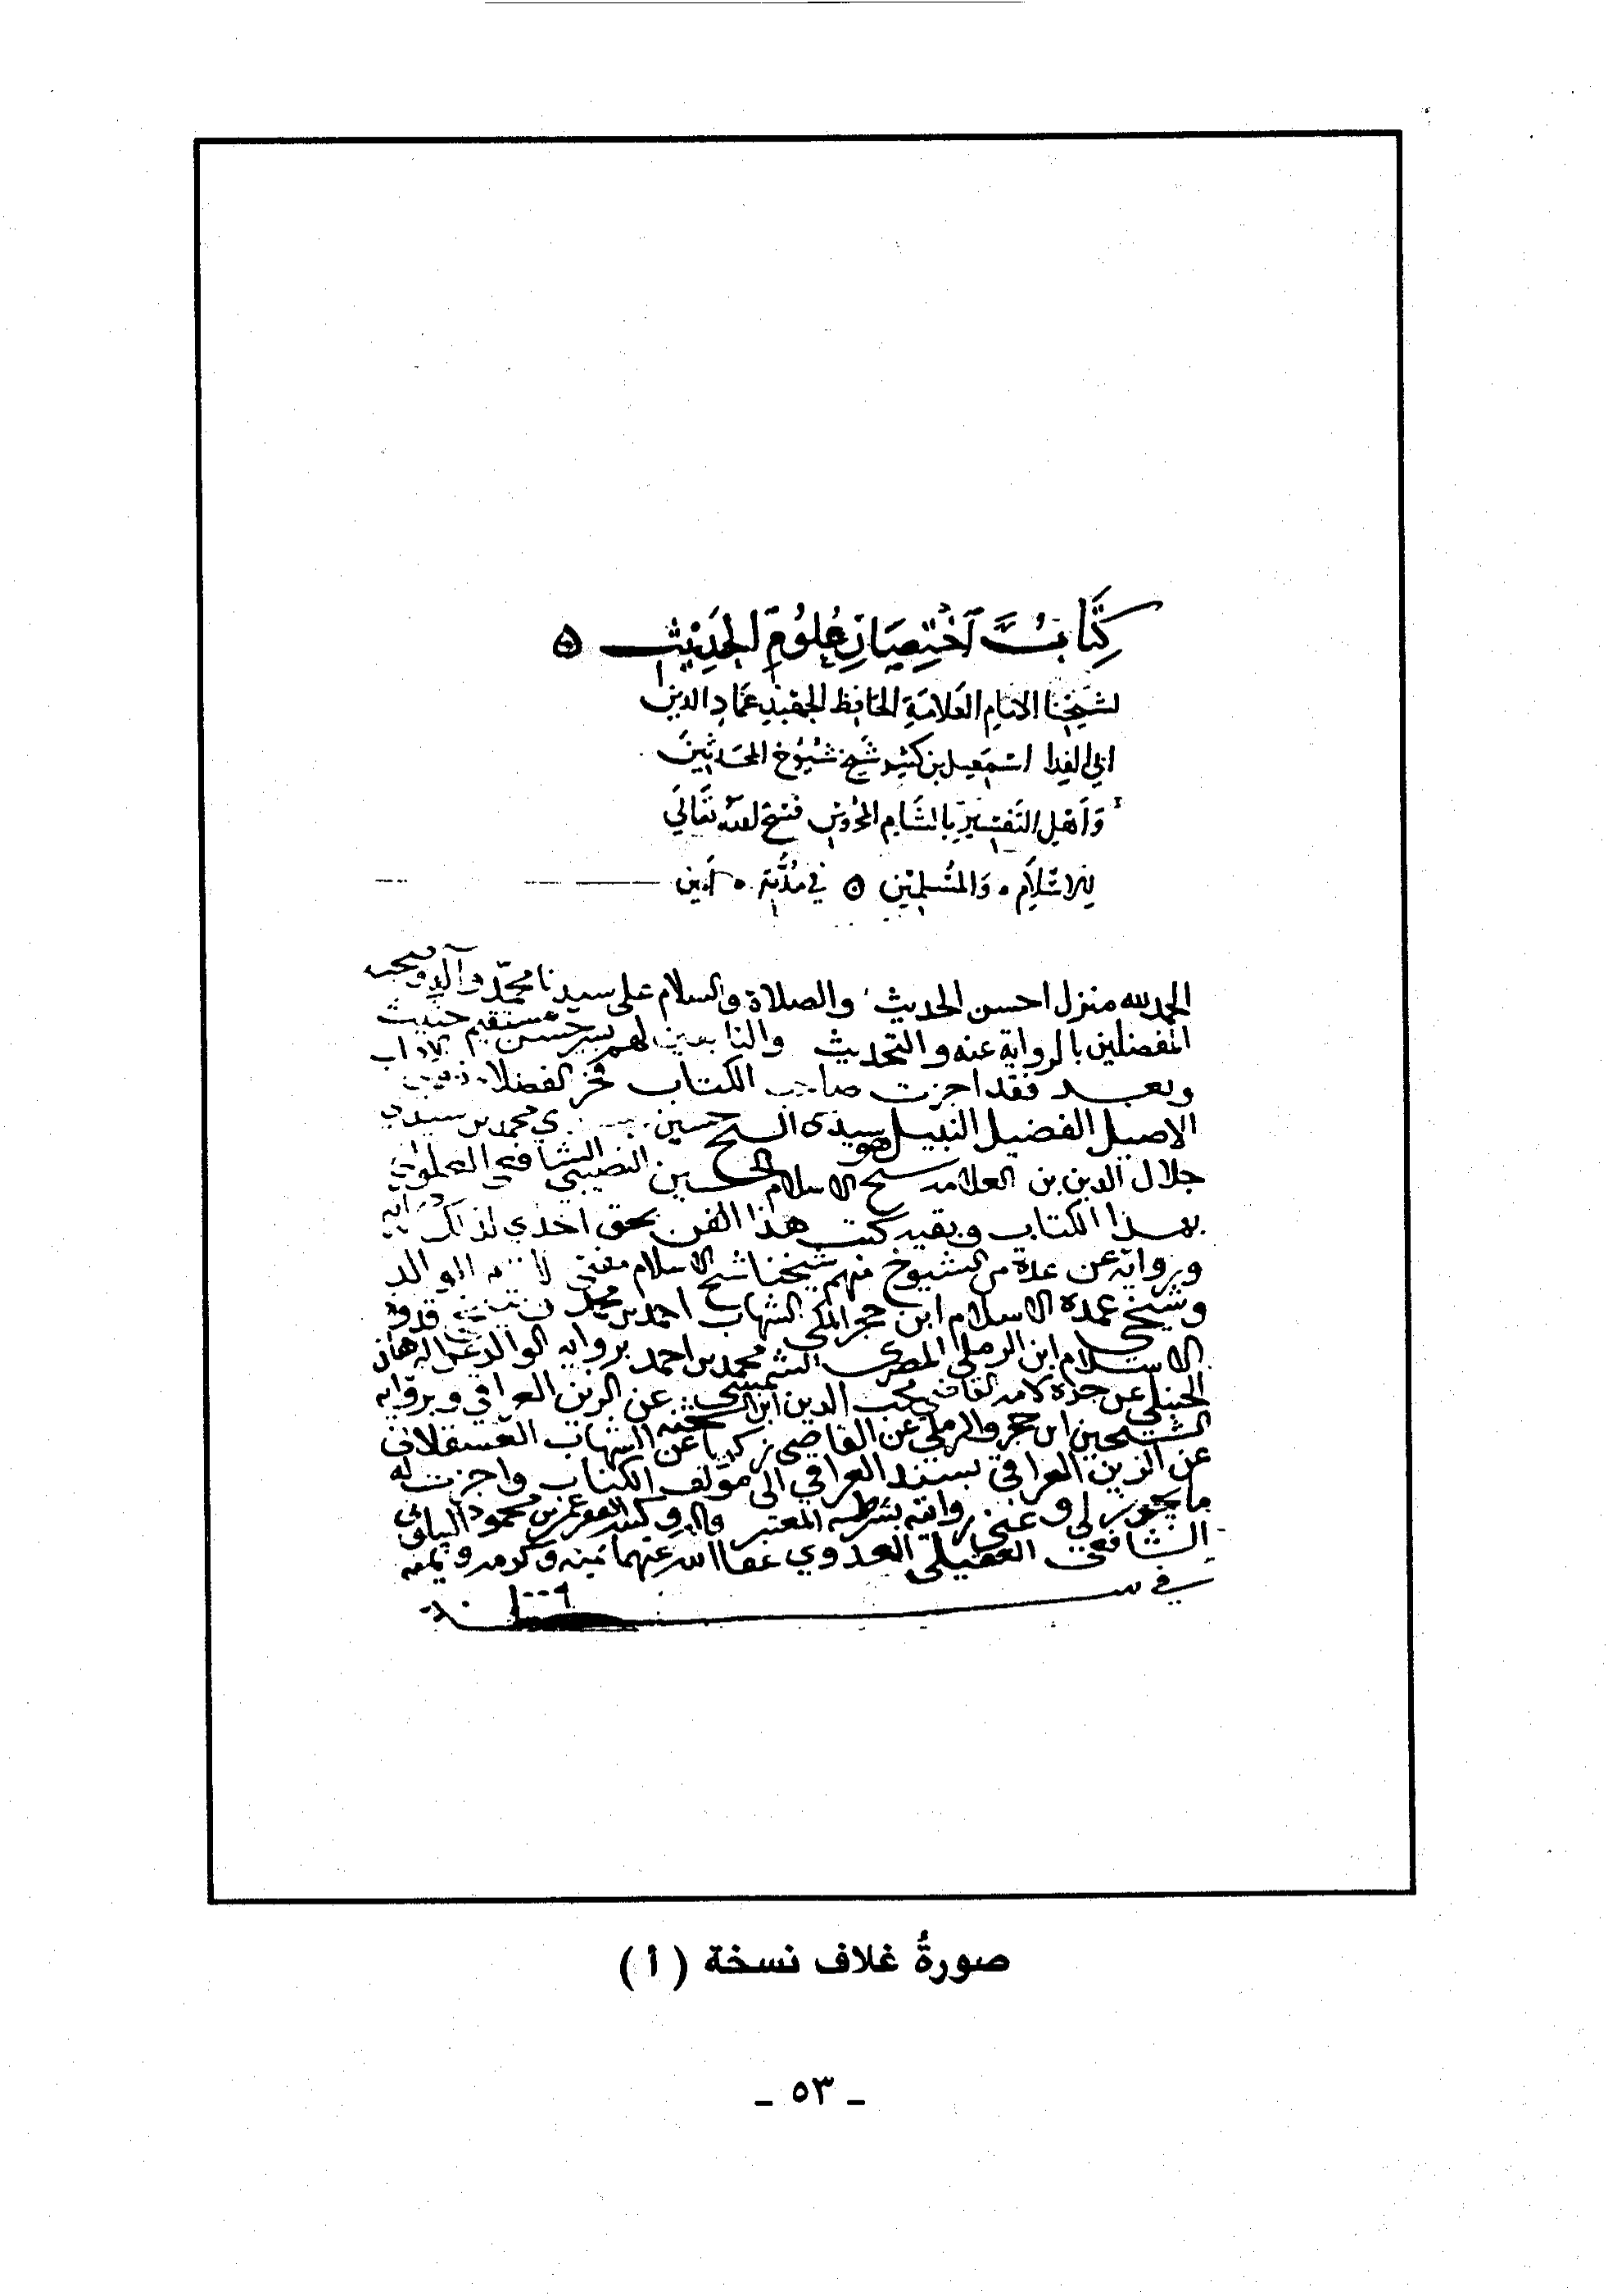 كتاب اختصار علوم الحديث
لشيخنا الامام العلامة الحافظ عماد الدين
ابي الفدا اسمعيل بن كثير شيخ شيوخ المحدثين
وأهل التفسير بالشام المحروس فسح الله تعالى
للاسلام والمسلمين في مدته امين
الحمد لله منزل احسن الحديث والصلاة والسلام على سيدنا محمد وآله وصحبه
المفضلين بالرواية عنه والتحديث والتابعين لهم بسير حسن مستقيم حثيث
وبعد فقد اجزت صاحب الكتاب فخر الفضلا
الاصيل الفضيل النبيل سيدي الشيخ حسين محمد بن سيدي
جلال الدين بن العلامة شيخ الاسلام الحسين النصيبي الشافعي
بهذا الكتاب وبقية كتب هذا الفن بحق اخذي لذلك
وبروايته عن عدة من الشيوخ منهم شيخنا شيخ الاسلام مفتي الوالد
وشيخي عمدة الاسلام ابن حجر المكي الشهاب احمد بن محمد
الاسلام ابن الرملي المصري الشمس محمد بن احمد برواية الوالد عن البرهان
الحنبلي عن محب الدين ابن الشحنة عن الزين العراقي وبرواية
الشيخين ابن حجر والرملي عن القاضي زكريا عن الشهاب العسقلاني
عن الزين العراقي بسند العراقي الى مؤلف الكتاب واجزت له
ما يجوز لي وعني روايته بشرطه المعتبر بن محمود البيلوني
الشافعي العقيلي العدوي عفا الله عنهما بمنه وكرمه ويمنه
في سنة ١٠٠٩
صورةُ غلاف نسخة ( أ )
ـ ٥٣ ـ